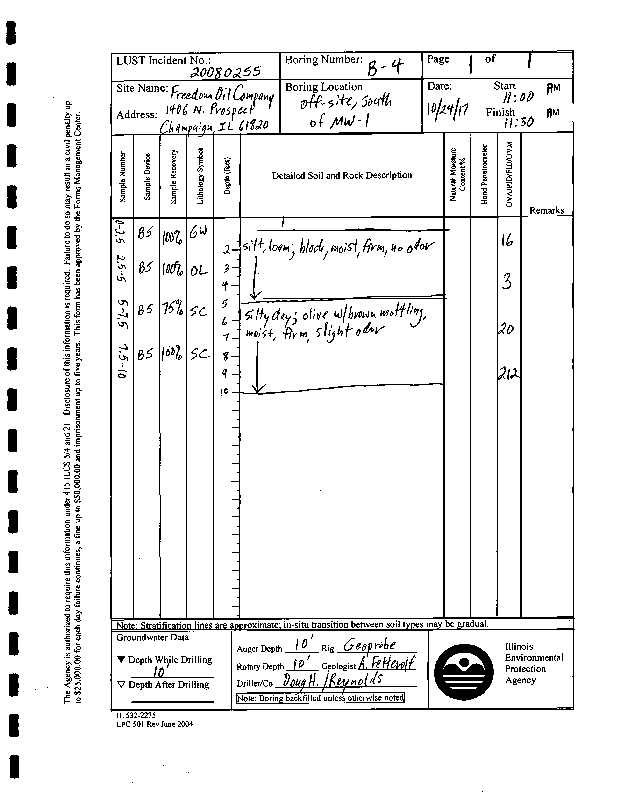 LUST Incident No.: 20080255
Boring Number: B-4
Page 1 of 1
Site Name: Freedom Oil Company
Address: 1406 N. Prospect
Champaign, IL 61820
Boring Location
off-site, South
of MW-1
Date: 10/24/17
Start AM
11:00
Finish AM
11:30
Sample Number
Sample Device
Sample Recovery
Lithology Symbol
Depth (feet)
Detailed Soil and Rock Description
Natural Moisture Content %
Hand Penetrometer
OVA/PID/FID/OVM
Remarks
0-2.5 BS 100% GW 16
2 silt, loam; black, moist, firm, no odor
2.5-5 BS 100% OL 3 3
4
5-7.5 BS 75% SC 5 20
6 silty clay; olive w/brown mottling,
7 moist, firm, slight odor
7.5-10 BS 100% SC 8 212
9
10
Note: Stratification lines are approximate; in-situ transition between soil types may be gradual.
Groundwater Data
▼ Depth While Drilling
10'
▽ Depth After Drilling
Auger Depth 10' Rig Geoprobe
Rotary Depth 10' Geologist A. Fetterolf
Driller/Co Doug H. /Reynolds
Note: Boring backfilled unless otherwise noted
Illinois
Environmental
Protection
Agency
IL 532-2275
LPC 501 Rev June 2004
The Agency is authorized to require this information under 415 ILCS 5/4 and 21. Disclosure of this information is required. Failure to do so may result in a civil penalty up
to $25,000.00 for each day failure continues, a fine up to $50,000.00 and imprisonment up to five years. This form has been approved by the Forms Management Center.